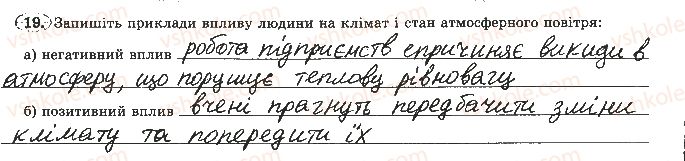 19. Запишіть приклади впливу людини на клімат і стан атмосферного повітря:
а) негативний вплив робота підприємств спричиняє викиди в
атмосферу, що порушує теплову рівновагу
б) позитивний вплив вчені прагнуть передбачити зміни
клімату та попередити їх